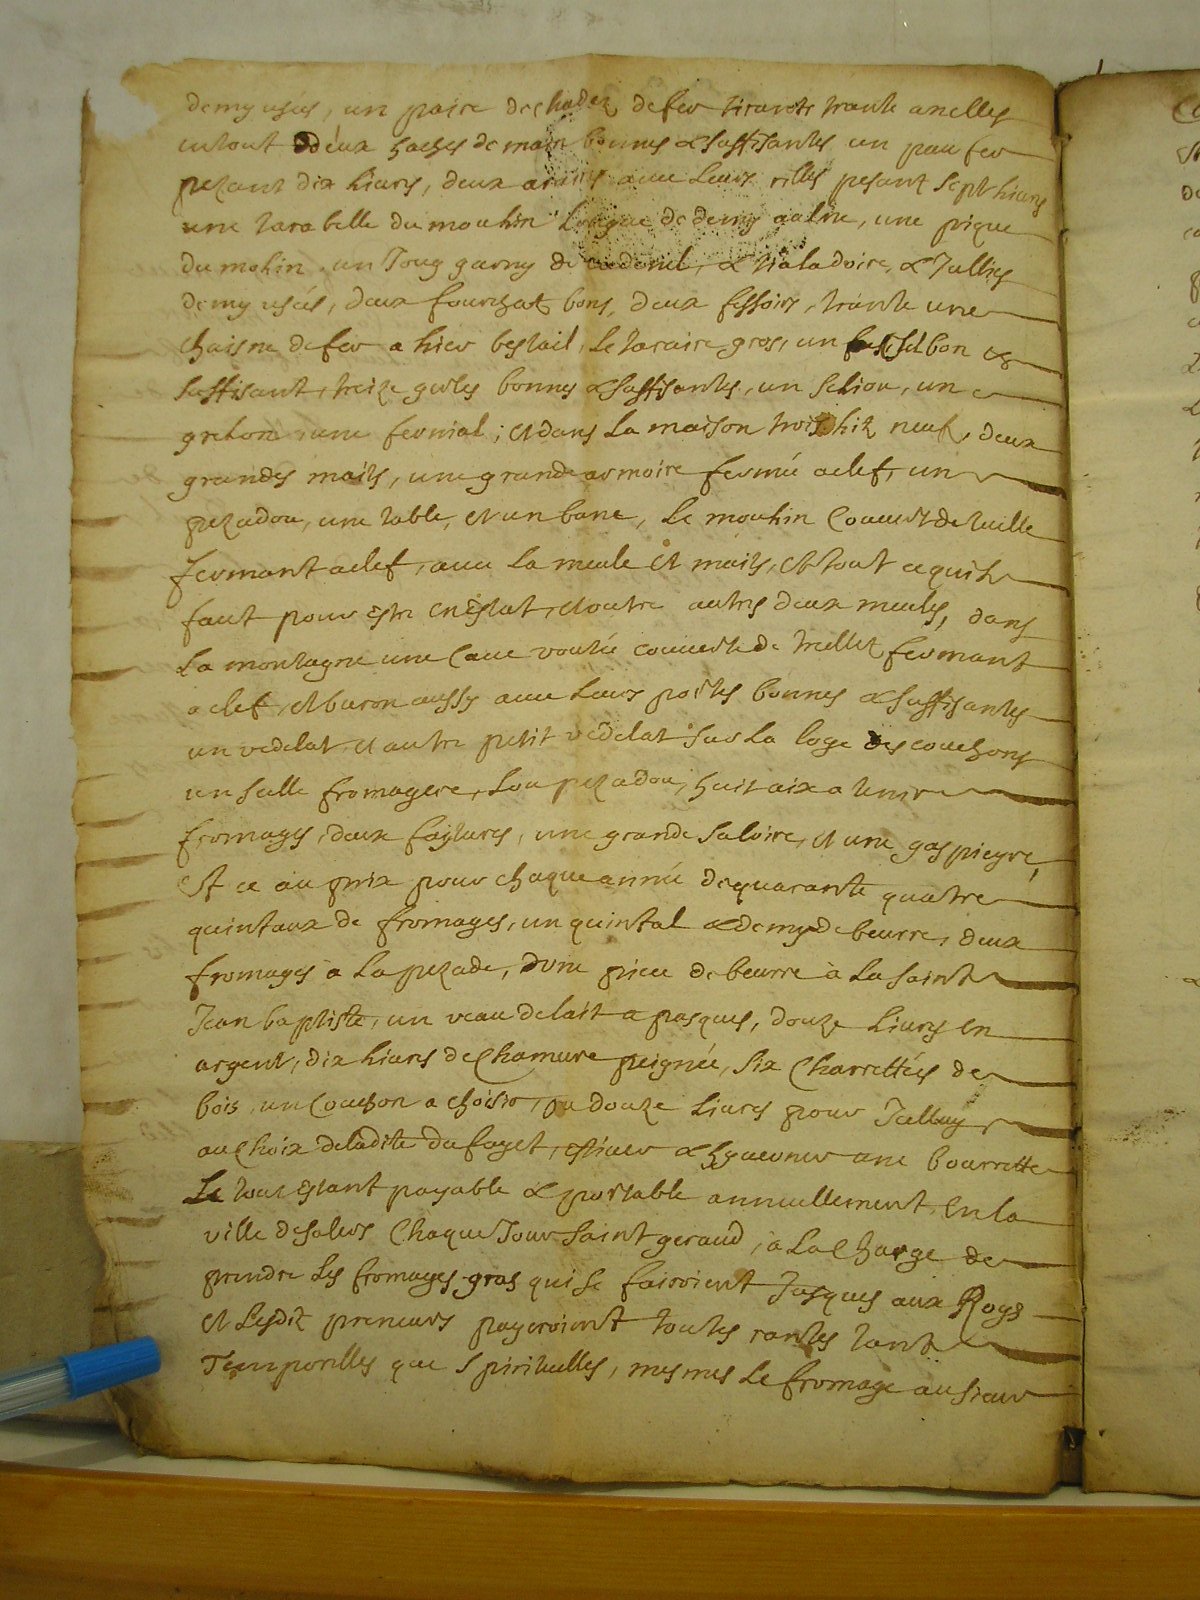 demy usés, un paire de chades de fer tirants trante anelles
en tout deux haches de main bonnes & suffisantes un pau fer
pezant dix livres, deux avec leurs pesant sept livres
une tarabelle du moulin longue de demy aulne, une pique
du molin, un Joug garny de & & Jullies
demy usés, deux fourchat bons, deux fessoirs, trante une
chaisne de fer a lier bestail, le taraire gros, un bon &
suffisant, treize gerles bonnes & suffisantes, un selion, un
une fernial; et dans la maison trois lits neufs, deux
grandes maits, une grande armoire fermée a clef, un
pezadou, une table, et un banc, le moulin couvert de tuille
fermant a clef, avec la meule et maits, et tout ce quil
faut pour estre en estat, et outre autres deux meules, dans
la montagne une cave voutée couverte de fermant
a clef, et buron aussy avec leurs portes bonnes & suffisantes
un vedelat et autre petit vedelat sur la loge des couchons
un selle fromagere, lou pezadou, huit aix a tenir
fromages, deux faysures, une grande saloire, et une gaspieyre,
Et ce au prix pour chaque année de quarante quatre
quintaux de fromages, un quintal & demy de beurre, deux
fromages a la pezade, dune piece de beurre à la saint
Jean baptiste, un veau de lait a pasques, douze livres en
argent, dix livres de chamure peignée, six charrettées de
bois, un couchon a choisir, ou douze livres pour Icelluy
au choix de ladite du fayet, estiver & hyverner une bourrette
Le tout estant payable & portable annuellement en la
ville de salers chaque Jour saint geraud, a la charge de
prendre les fromages gras qui se fairoient Jusques aux Roys
et lesdit preneurs payeroient toutes rantes tant
Temporelles que Spirituelles, mesmes le fromage au sieur